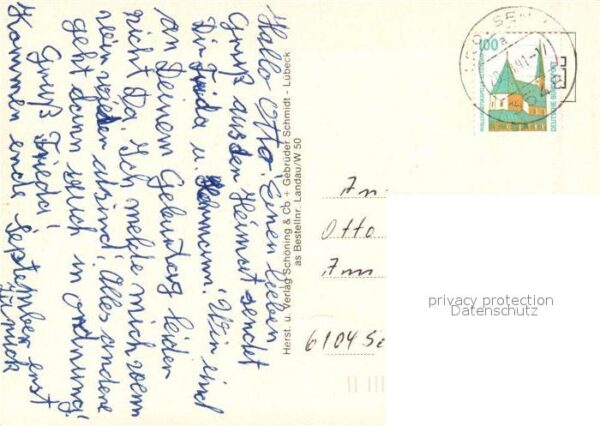 Hallo Otto! Einen lieben
Gruß aus der Heimat sendet
Dir Frieda u. Hermann! Wir sind
an Deinem Geburtstag leider
nicht da. Ich melde mich wenn
wir wieder da sind! Alles andere
geht dann auch in ordnung!
Gruß Frieda!
Kommen ende September erst
zurück
Herst. u. Verlag Schöning & Co + Gebrüder Schmidt - Lübeck
as Bestellnr. Landau/W 50
100
DEUTSCHE BUNDESPOST
An
Otto
Am
6104 Se
privacy protection
Datenschutz